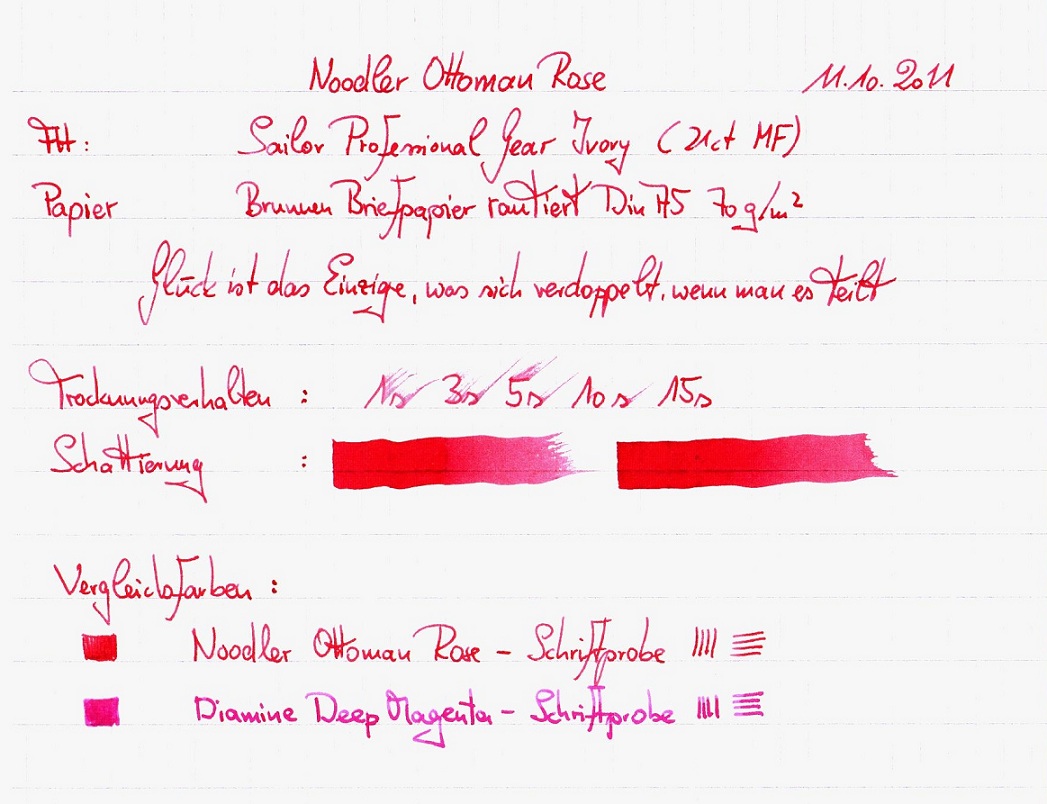 Noodler Ottoman Rose 11.10.2011
FH: Sailor Professional Gear Ivory (21ct MF)
Papier Brunnen Briefpapier rautiert Din A5 70g/m²
Glück ist das Einzige, was sich verdoppelt, wenn man es teilt
Trocknungsverhalten : 1s 3s 5s 10s 15s
Schattierung :
Vergleichsfarben :
Noodler Ottoman Rose - Schriftprobe
Diamine Deep Magenta - Schriftprobe